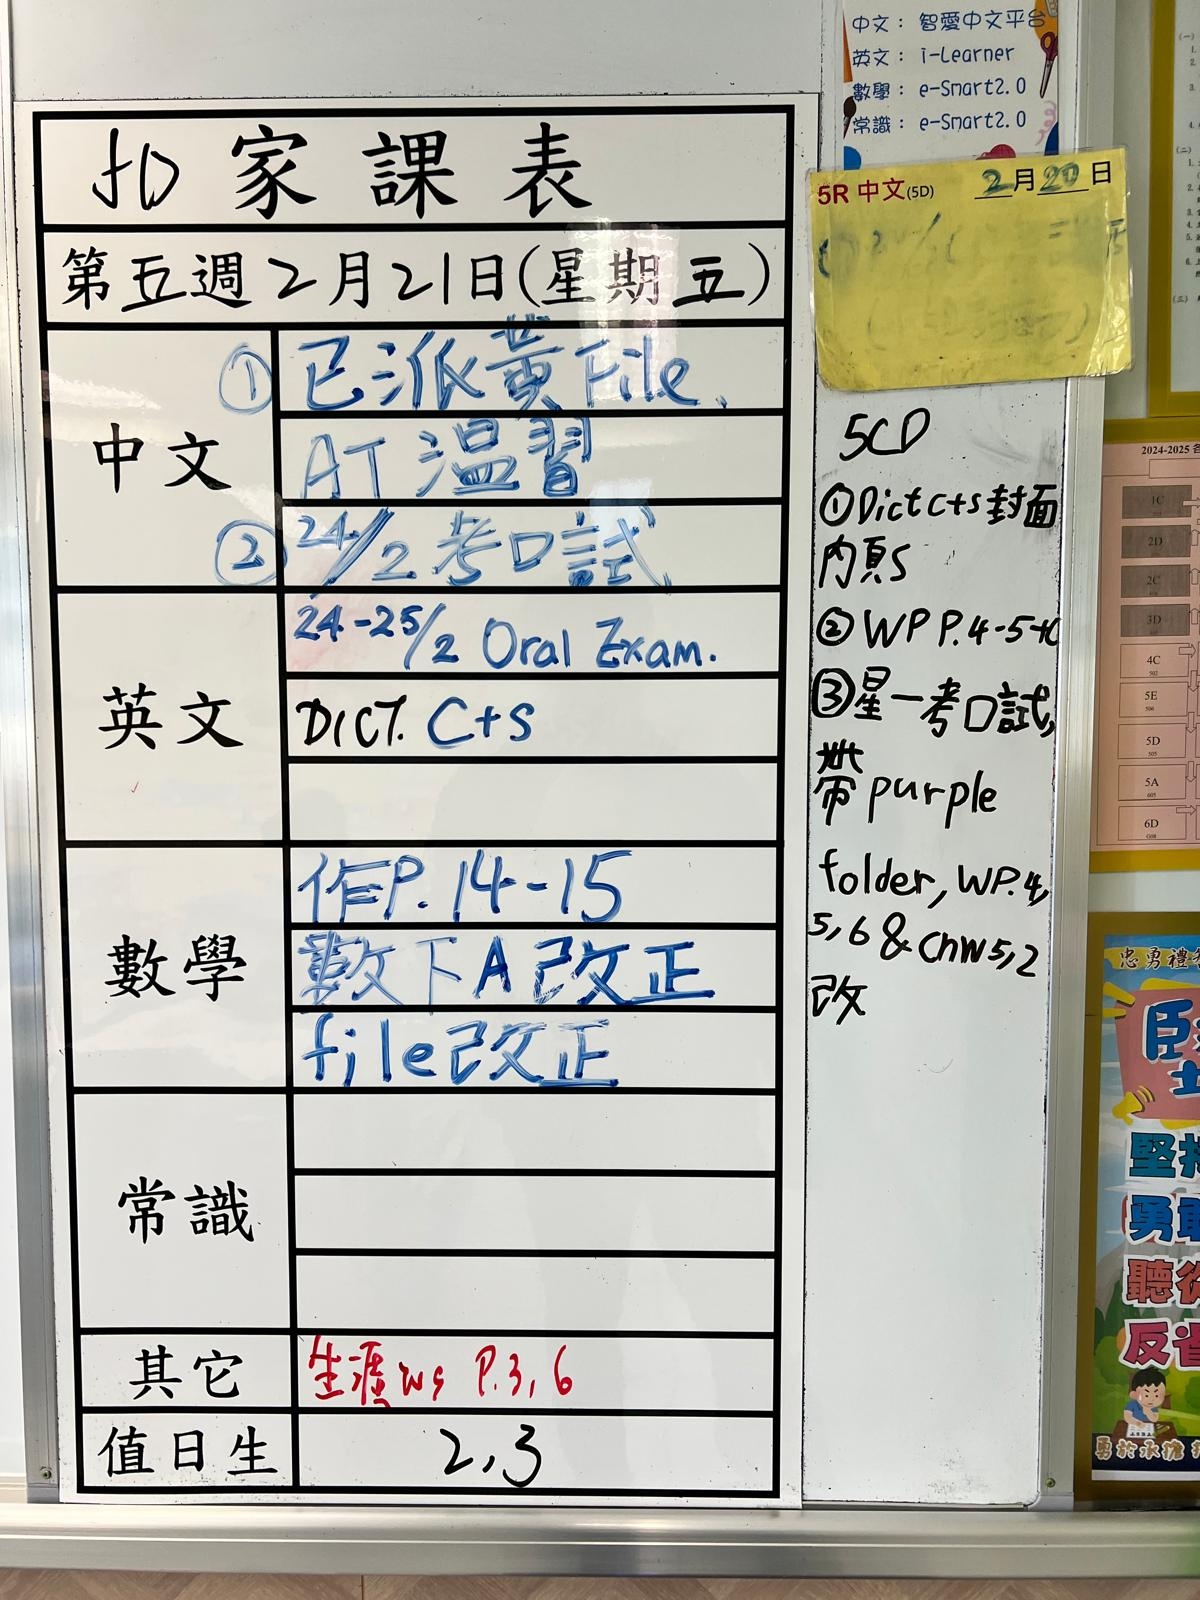 中文： 智愛中文平台
英文： i-Learner
數學： e-Smart2.0
常識： e-Smart2.0
5D 家課表
第五週2月21日(星期五)
中文
① 已派黃File、
AT 溫習
② 24/2 考口試
英文
24-25/2 Oral Exam.
DICT. C+S
數學
作P.14-15
數下A改正
file改正
常識
其它
生涯ws P.3,6
值日生
2,3
5R 中文(5D) 2月20日
5CD
①Dict C+S 封面
內頁S
②WP P.4-5+C
③星一考口試,
帶purple
folder, WP.4,
5,6 & CHW5,2
改
2024-2025
1C
2D
2C
3D
4C
5E
5D
5A
6D
忠勇禮
堅持
勇敢
聽從
反省
勇於承擔